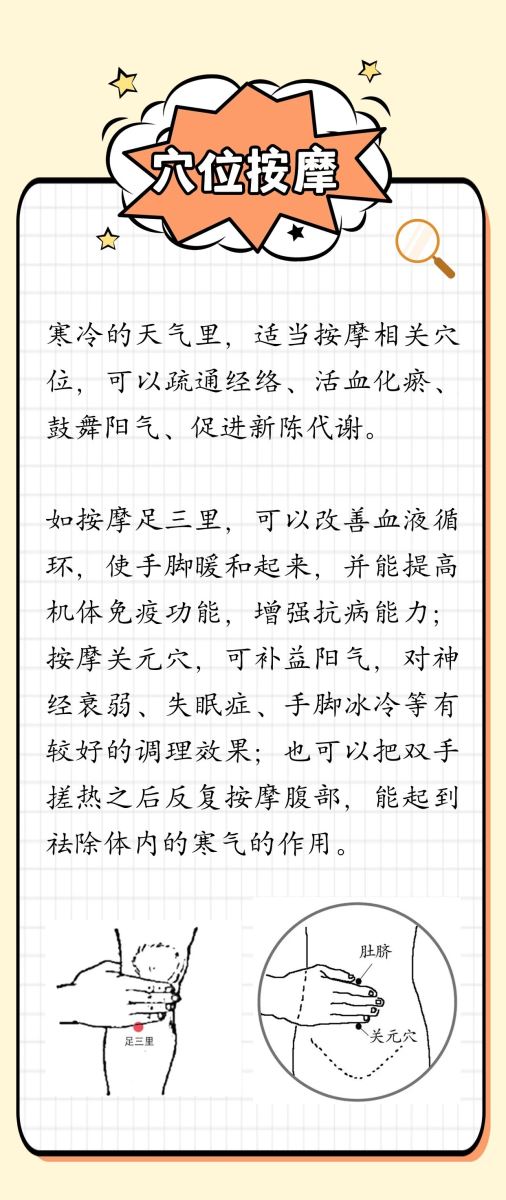 穴位按摩
寒冷的天气里，适当按摩相关穴
位，可以疏通经络、活血化瘀、
鼓舞阳气、促进新陈代谢。
如按摩足三里，可以改善血液循
环，使手脚暖和起来，并能提高
机体免疫功能，增强抗病能力；
按摩关元穴，可补益阳气，对神
经衰弱、失眠症、手脚冰冷等有
较好的调理效果；也可以把双手
搓热之后反复按摩腹部，能起到
祛除体内的寒气的作用。
足三里
肚脐
关元穴